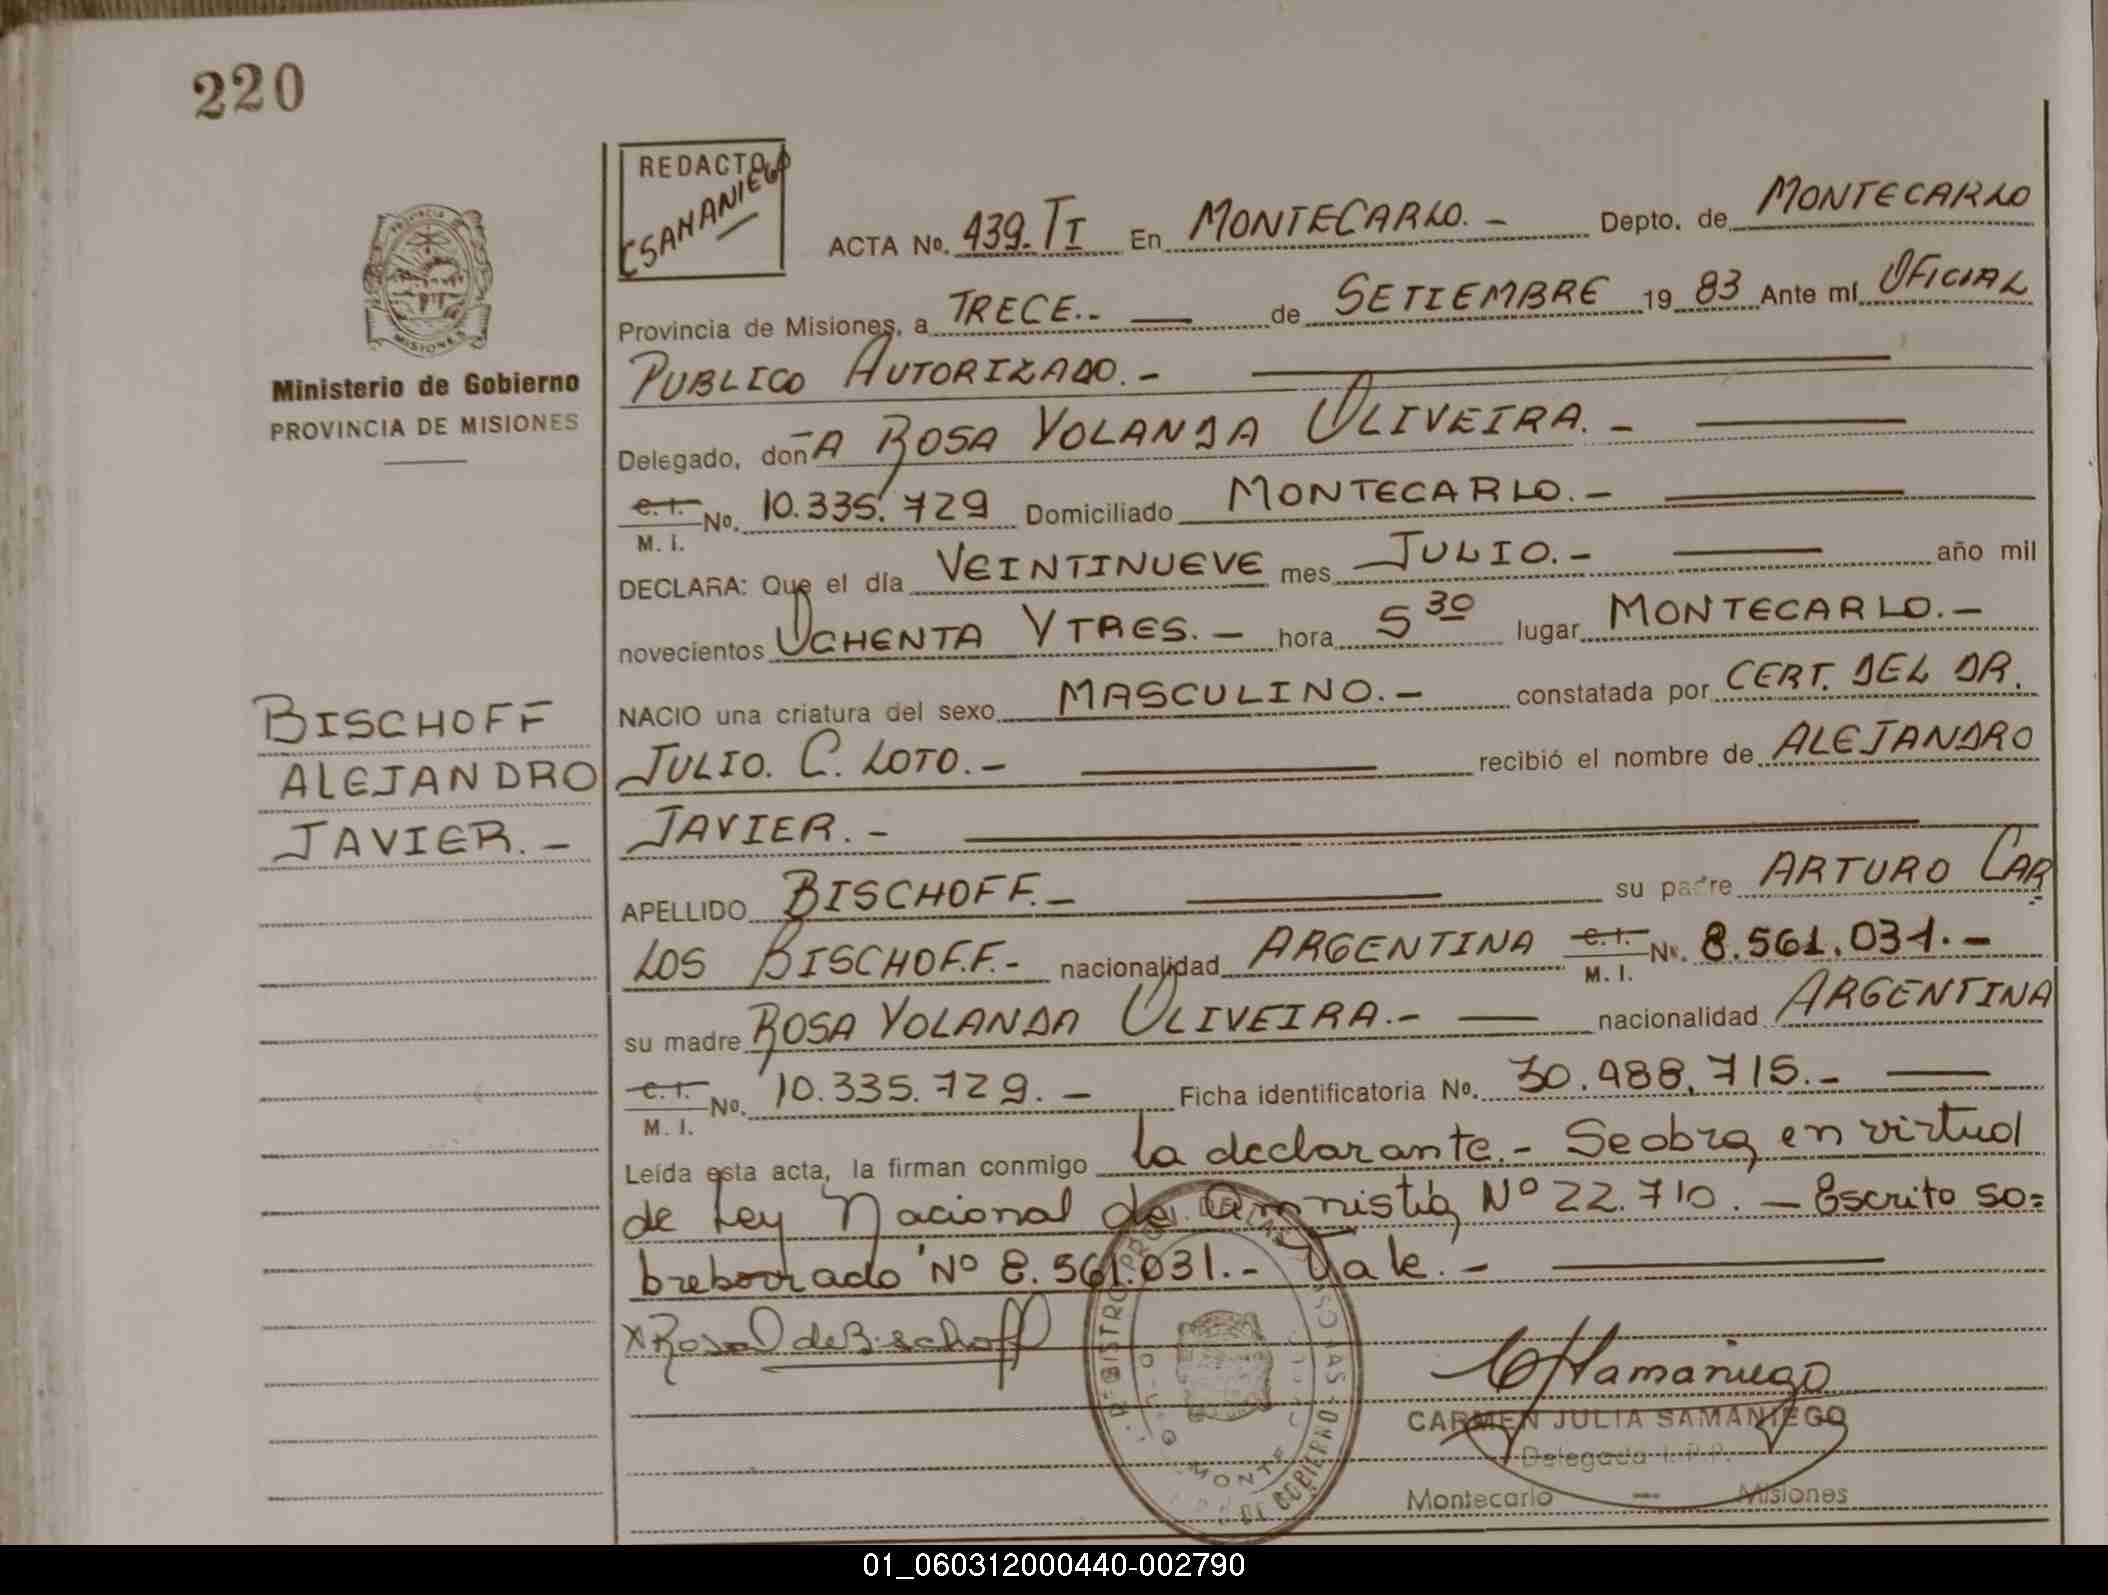 220
REDACTO
CSAMANIEGO
ACTA No. 439. TI En MONTECARLO. - Depto. de MONTECARLO
Provincia de Misiones, a TRECE.- de SETIEMBRE 19 83 Ante mí OFICIAL
PUBLICO AUTORIZADO. -
Delegado, doñA ROSA YOLANDA OLIVEIRA. -
C. I. No. 10.335.729 Domiciliado MONTECARLO. -
M. I.
DECLARA: Que el día VEINTINUEVE mes JULIO. - año mil
novecientos OCHENTA Y TRES. - hora 5 30 lugar MONTECARLO. -
NACIO una criatura del sexo MASCULINO. - constatada por CERT. DEL DR.
JULIO. C. LOTO. - recibió el nombre de ALEJANDRO
JAVIER. -
APELLIDO BISCHOFF. - su padre ARTURO CAR
LOS BISCHOFF. - nacionalidad ARGENTINA C. I. No. 8.561.031. -
M. I.
su madre ROSA YOLANDA OLIVEIRA. - nacionalidad ARGENTINA
C. I. No. 10.335.729. - Ficha identificatoria No. 30.488.715. -
M. I.
Leída esta acta, la firman conmigo la declarante. - Se obra en virtud
de Ley Nacional de Amnistía Nº 22.710. - Escrito so=
breborrado Nº 8.561.031. - Vale. -
x Rosa O de Bischoff
CSamaniego
CARMEN JULIA SAMANIEGO
Delegada R.P.P.
Montecarlo - Misiones
PROVINCIA
MISIONES
Ministerio de Gobierno
PROVINCIA DE MISIONES
BISCHOFF
ALEJANDRO
JAVIER. -
01_060312000440-002790